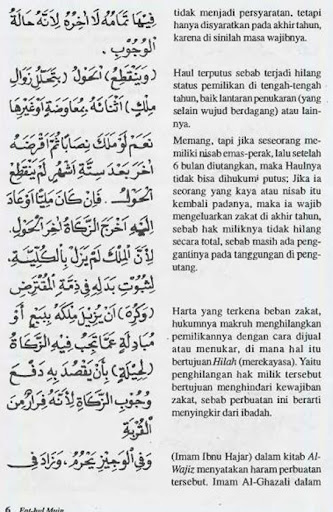 فِيْهَا تَمَامُهُ لَا آخِرُهُ لِأَنَّهُ حَالَةُ
الْوُجُوْبِ.
(وَيَنْقَطِعُ) الْحَوْلُ (بِتَخَلُّلِ زَوَالِ
مِلْكٍ) أَثْنَاءَهُ بِمُعَاوَضَةٍ أَوْ غَيْرِهَا
نَعَمْ لَوْ مَلَكَ نِصَابًا ثُمَّ أَقْرَضَهُ
آخَرَ بَعْدَ سِتَّةِ أَشْهُرٍ لَمْ يَنْقَطِعِ
الْحَوْلُ. فَإِنْ كَانَ مَلِيًّا أَوْ عَادَ
إِلَيْهِ أَخْرَجَ الزَّكَاةَ آخِرَ الْحَوْلِ.
لِأَنَّ الْمِلْكَ لَمْ يَزُلْ بِالْكُلِّيَّةِ.
لِثُبُوْتِ بَدَلِهِ فِيْ ذِمَّةِ الْمُقْتَرِضِ
(وَكُرِهَ) أَنْ يُزِيْلَ مِلْكَهُ بِبَيْعٍ أَوْ
مُبَادَلَةٍ عَمَّا تَجِبُ فِيْهِ الزَّكَاةُ
(لِحِيْلَةٍ) بِأَنْ يَقْصِدَ بِهِ دَفْعَ
وُجُوْبِ الزَّكَاةِ لِأَنَّهُ فِرَارٌ مِنَ
الْقُرْبَةِ
وَفِي الْوَجِيْزِ يَحْرُمُ، وَزَادَ فِى
tidak menjadi persyaratan, tetapi
hanya disyaratkan pada akhir tahun,
karena di sinilah masa wajibnya.
Haul terputus sebab terjadi hilang
status pemilikan di tengah-tengah
tahun, baik lantaran penukaran (yang
selain wujud berdagang) atau lain-
nya.
Memang, tapi jika seseorang me-
miliki nisab emas-perak, lalu setelah
6 bulan diutangkan, maka Haulnya
tidak bisa dihukumi putus; Jika ia
seorang yang kaya atau nisab itu
kembali padanya, maka ia wajib
mengeluarkan zakat di akhir tahun,
sebab hak miliknya tidak hilang
secara total, sebab masih ada peng-
gantinya pada tanggungan di peng-
utang.
Harta yang terkena beban zakat,
hukumnya makruh menghilangkan
pemilikannya dengan cara dijual
atau menukar, di mana hal itu
bertujuan Hilah (merekayasa). Yaitu
penghilangan hak milik tersebut
bertujuan menghindari kewajiban
zakat, sebab perbuatan ini berarti
menyingkir dari ibadah.
(Imam Ibnu Hajar) dalam kitab Al-
Wajiz menyatakan haram perbuatan
tersebut. Imam Al-Ghazali dalam
6 Fat-hul Muin